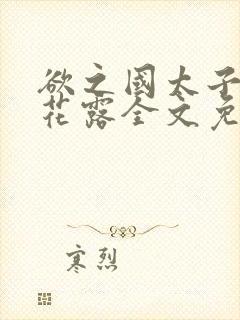 欲之國太子
花露全文免
寒烈